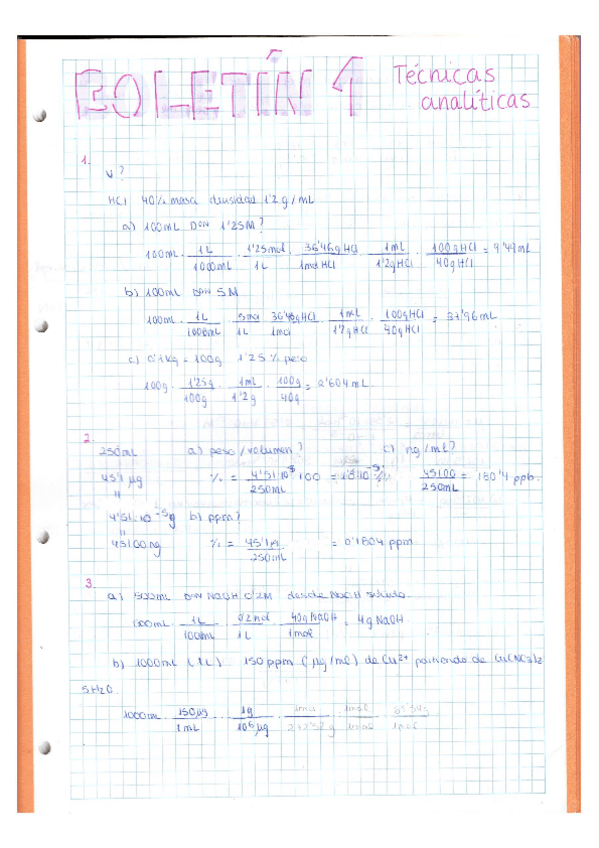 BOLETÍN 1 Técnicas analíticas
1.
V?
HCl 40% masa densidad 1'2 g/mL
a) 100mL DON 1'25M?
100mL · 1L/1000mL · 1'25mol/1L · 36'46g HCl/1mol HCl · 1mL/1'2g HCl · 100g HCl/40g HCl = 9'49mL
b) 100mL DON 5M
100mL · 1L/1000mL · 5mol/1L · 36'46g HCl/1mol · 1mL/1'2g HCl · 100g HCl/40g HCl = 37'96mL
c) 0'1kg = 100g 1'25% peso
100g · 1'25g/100g · 1mL/1'2g · 100g/40g = 2'604mL
2.
250mL a) peso/volumen? c) ng/mL?
45'1 µg % = 4'51·10⁻⁵/250mL 100 = 1'8·10⁻⁵% 45100/250mL = 180'4 ppb
"
4'51·10⁻⁵g b) ppm?
"
45100ng % = 45'1µg/250mL = 0'1804 ppm
3.
a) 500mL DON NaOH 0'2M desde NaOH sólido
500mL · 1L/1000mL · 0'2mol/1L · 40g NaOH/1mol = 4g NaOH
b) 1000mL (1L) 150 ppm (µg/mL) de Cu²⁺ partiendo de Cu(NO3)2
5H2O
1000mL · 150µg/1mL · 1g/10⁶µg · 1mol · 1mol/1mol · 1mol